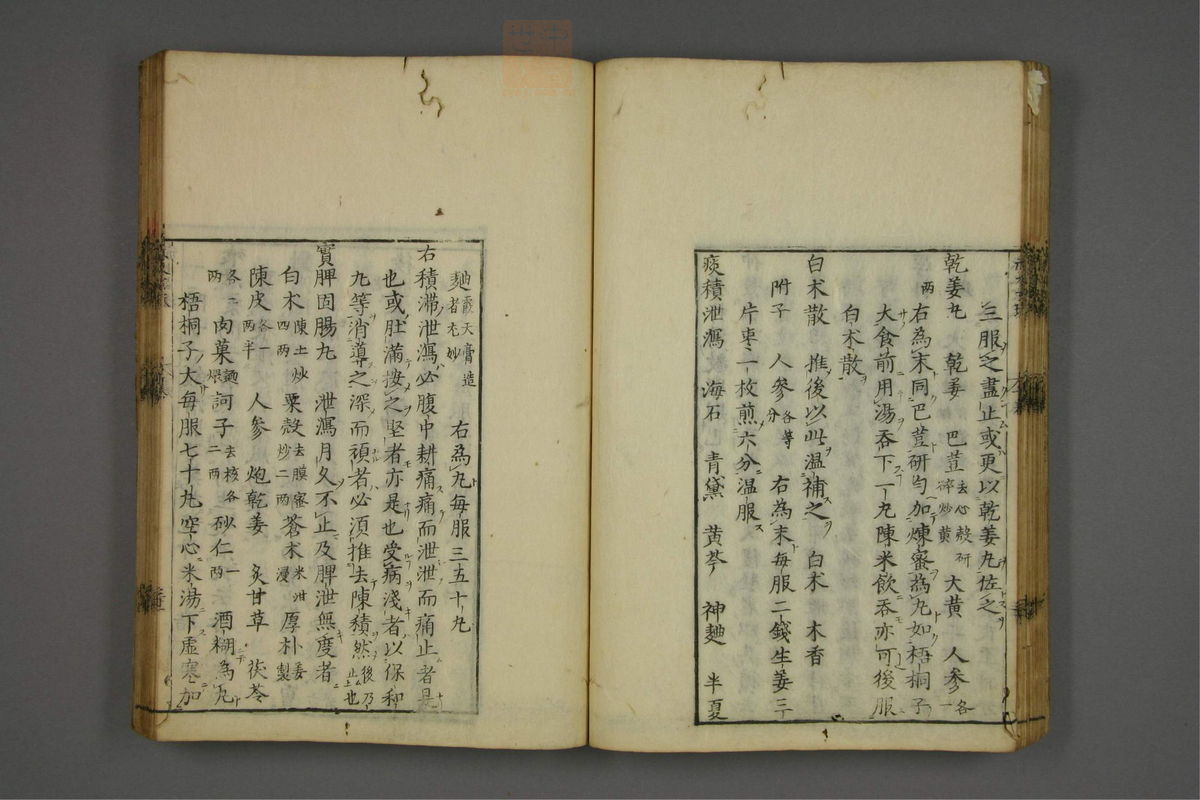 三服之盡止或更以乾姜丸佐之
乾姜丸 乾姜 巴荳去心殼研碎炒黃 大黃 人參各一兩
右為末同巴荳研勻加煉蜜為丸如梧桐子
大食前用湯吞下一丸陳米飲吞亦可後服
白朮散
白朮散 推後以此温補之 白朮 木香
附子 人參各等分 右為末每服二錢生姜三
片枣二枚煎六分温服
痰積泄瀉 海石 青黛 黃芩 神麯 半夏
麯霞天膏造者尤妙 右為丸每服三五十丸
右積滯泄瀉必腹中耕痛痛而泄泄而痛止者是
也或肚滿按之堅者亦是也受病淺者以保和
丸等消導之深而頑者必須推去陳積然後乃止也
實脾固腸丸 泄瀉月久不止及脾泄無度者
白朮陳土炒四兩 粟殼去膜蜜炒二兩 蒼朮米泔浸 厚朴姜製
陳皮各一兩半 人參 炮乾姜 炙甘草 茯苓
各二兩 肉菓麵煨 訶子去核各二兩 砂仁一兩 酒糊為丸
梧桐子大每服七十丸空心米湯下虛寒加